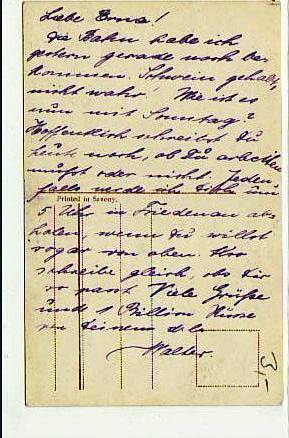 Liebe Erna!
Die Bahn habe ich
gestern gerade noch be-
kommen. Schwein gehabt,
nicht wahr! Wie ist es
nun mit Sonntag?
Hoffentlich schreibst Du
heute noch, ob Du arbeiten
mußt oder nicht. Jeden-
falls werde ich Dich um
Printed in Saxony.
5 Uhr in Friedenau ab-
holen, wenn Du willst
sogar von oben.
schreibe gleich, obs Dir
so passt Viele Grüße
und 1 Billion Küsse
von Deinem
Walter.
3,-